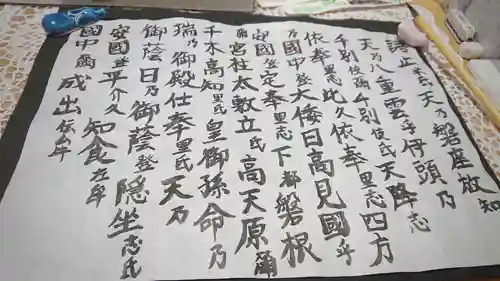 語止米天乃磐座放知
天乃八重雲乎伊頭乃
千別伎爾千別伎氐天降志
依奉里志此久依奉里志四方
乃國中登大倭日高見國乎
安國登定奉里志下都磐根
爾宮柱太敷立氐高天原爾
千木高知里氐皇御孫命乃
瑞乃御殿仕奉里氐天乃
御蔭日乃御蔭登隠坐志氐
安國登平介久知食左牟
國中爾成出伝牟